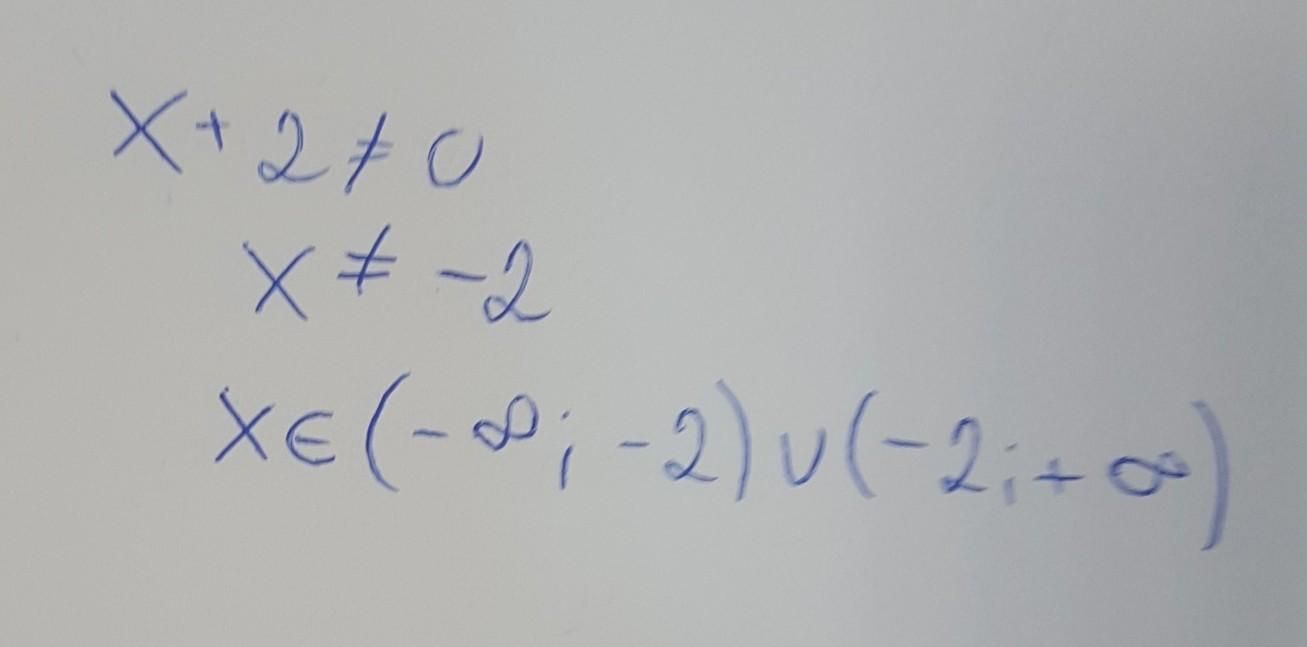 x + 2 ≠ 0
x ≠ -2
x ∈ (-∞; -2) ∪ (-2; +∞)